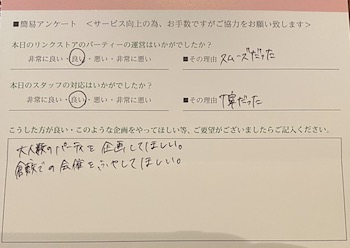 ■簡易アンケート ＜サービス向上の為、お手数ですがご協力をお願い致します＞
本日のリンクストアのパーティーの運営はいかがでしたか？
非常に良い・良い・悪い・非常に悪い ■その理由 スムーズだった
本日のスタッフの対応はいかがでしたか？
非常に良い・良い・悪い・非常に悪い ■その理由 丁寧だった
こうした方が良い・このような企画をやってほしい等、ご要望がございましたらご記入ください。
大人数のパーティを企画してほしい。
倉敷での開催をふやしてほしい。